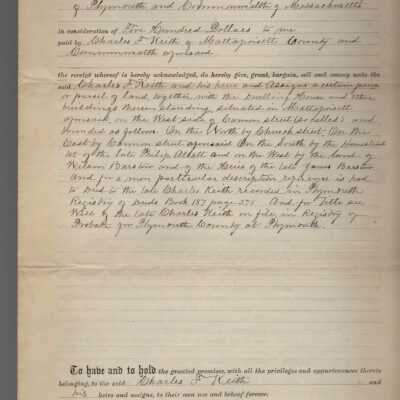 of Plymouth and Commonwealth of Massachusetts
in consideration of Five Hundred Dollars to me
paid by Charles F Keith of Mattapoisett County and
Commonwealth aforesaid
the receipt whereof is hereby acknowledged, do hereby give, grant, bargain, sell and convey unto the
said Charles F Keith and his heirs and Assigns a certain piece
or parcel of land, together with the Dwelling House and other
buildings thereon standing situated in Mattapoisett
aforesaid, on the West side of Cannon street (so called) and
bounded as follows. On the North by Church street. On the
East by Cannon street aforesaid On the South by the Homestead
of the late Philip and on the West by the land of
Wilson Barstow and of the Heirs of the late Barstow
And for a more particular description reference is had
to Deed to the late Charles Keith recorded in Plymouth
Registry of Deeds Book 187 page 275 And for Title see
Will of the late Charles Keith on file, in Registry of
Probate for Plymouth County at Plymouth
To have and to hold the granted premises, with all the privileges and appurtenances thereto
belonging, to the said Charles F Keith and
his heirs and assigns, to their own use and behoof forever;